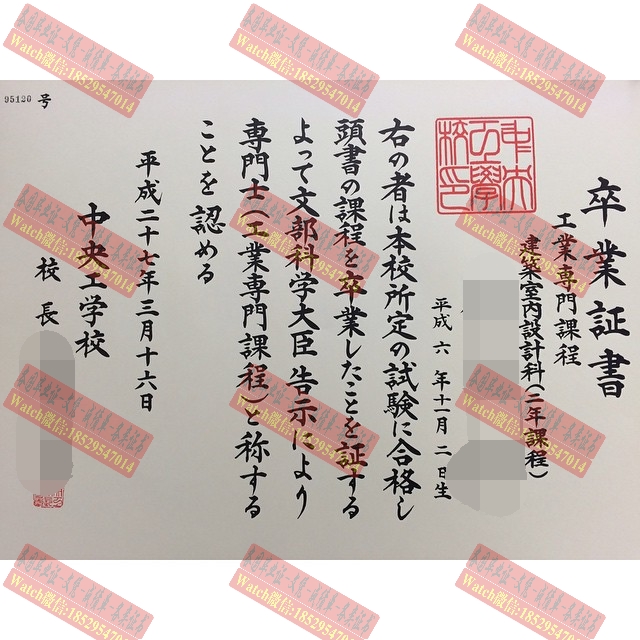 95120 号
卒業証書
工業専門課程
建築室内設計科(二年課程)
平成 六 年十一月 二 日生
中央工學校印
右の者は本校所定の試験に合格し
頭書の課程を卒業したことを証する
よって文部科学大臣告示により
専門士(工業専門課程)と称する
ことを認める
平成二十七年三月十六日
中央工学校
校長
Watch微信:18529547014
Watch微信:18529547014
Watch微信:18529547014
Watch微信:18529547014
Watch微信:18529547014
Watch微信:18529547014
Watch微信:18529547014
Watch微信:18529547014
Watch微信:18529547014
Watch微信:18529547014
Watch微信:18529547014
Watch微信:18529547014